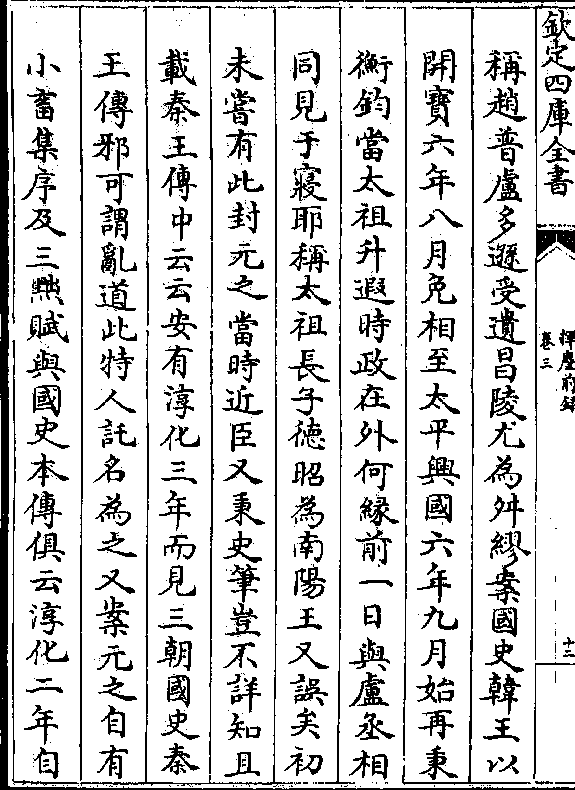 欽定四庫全書
揮麈前録
卷三
十三
稱趙普盧多遜受遺昌陵尤為舛繆案國史韓王以
開寶六年八月免相至太平興國六年九月始再秉
衡鈞當太祖升遐時政在外何縁前一日與盧丞相
同見于寢耶稱太祖長子徳昭為南陽王又誤矣初
未嘗有此封元之當時近臣又秉史筆豈不詳知且
載秦王傳中云云安有淳化三年而見三朝國史秦
王傳邪可謂亂道此特人託名為之又案元之自有
小畜集序及三黜賦與國史本傳俱云淳化二年自